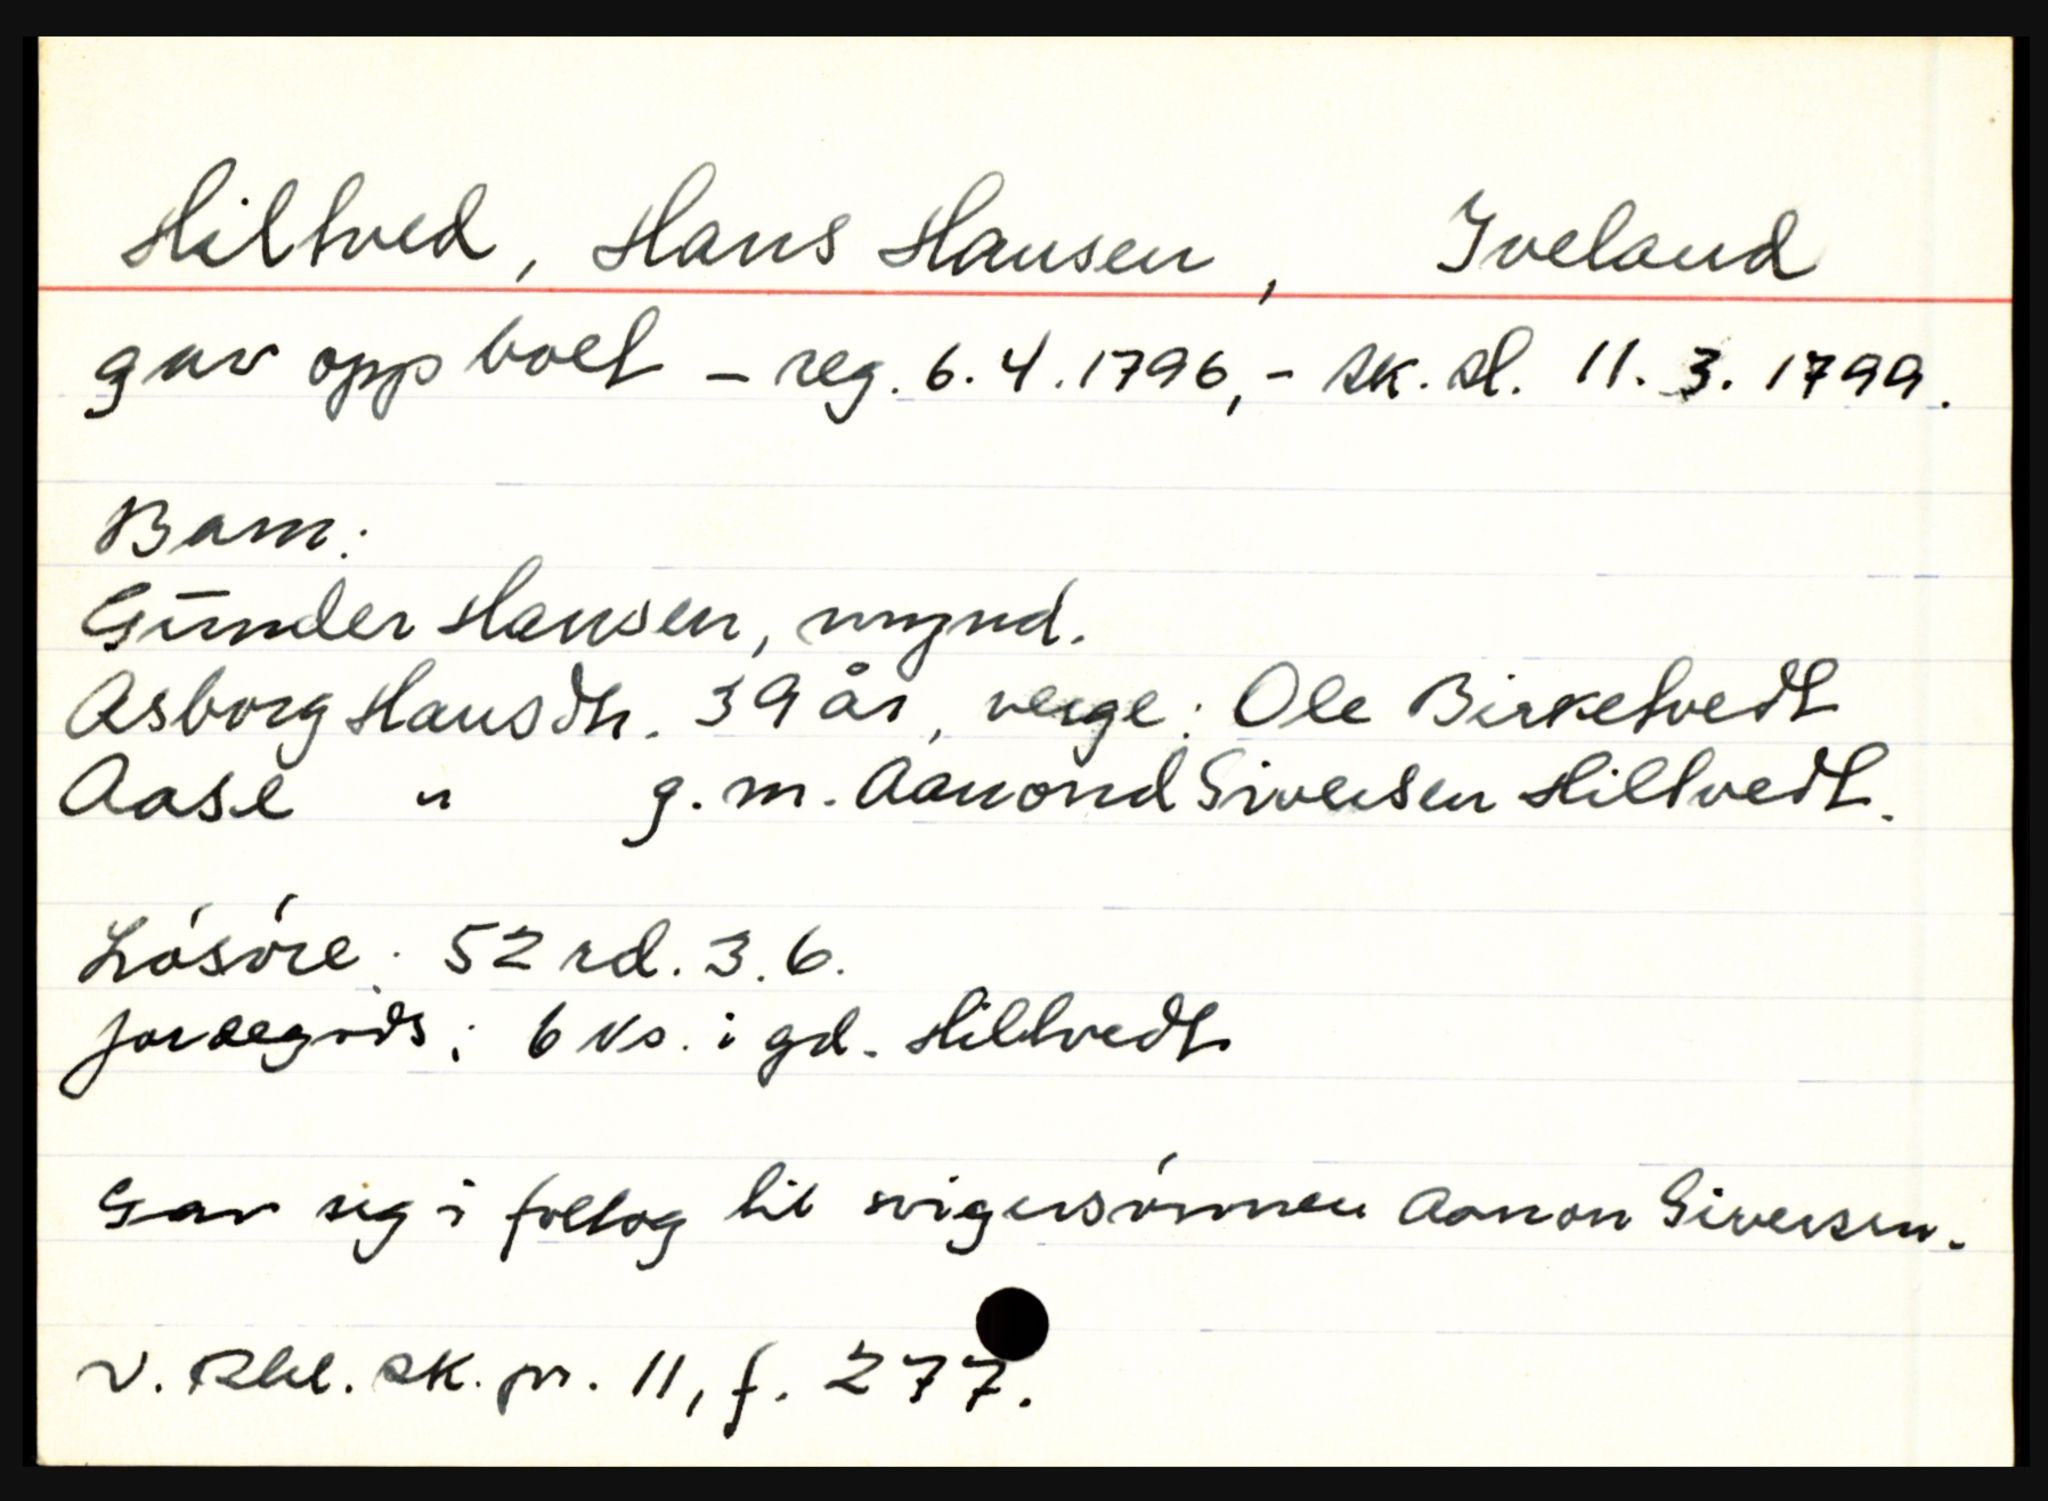 Hiltved, Hans Hansen, Iveland
gav opp boet - reg. 6.4.1796, - sk. sl. 11.3.1799.
Barn:
Gūnder Hansen, mynd.
Asborg Hansdtr. 39 år, verge: Ole Birketvedt
Aase " g.m. Aanond Siversen Hiltvedt.
Lósóre: 52 rd. 3.6.
jordegóds: 6 ks. i gd. Hiltvedt
Gav seg i follog til svigersónnen Aanon Siversen.
V. Rbl. sk. pr. 11, f. 277.